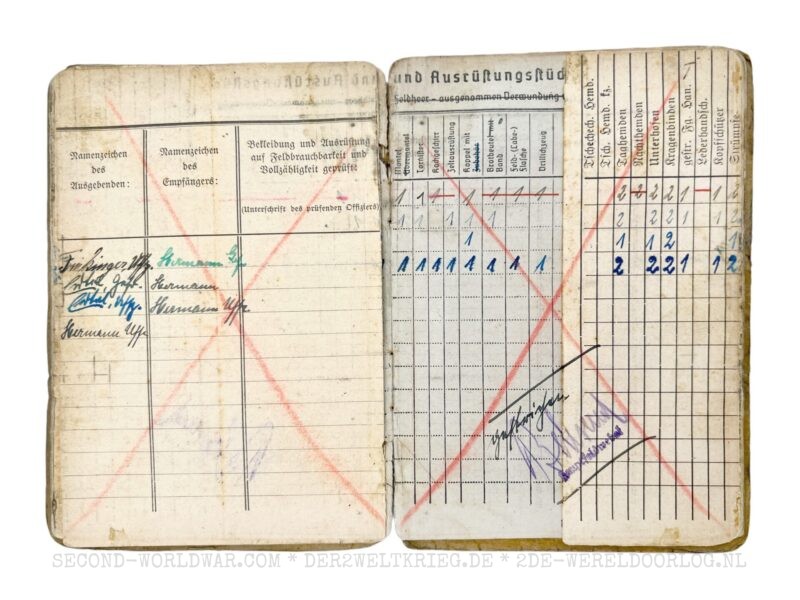 und Ausrüstungsstüc
Feldheer – ausgenommen Verwundung
Namenzeichen
des
Ausgebenden:
Namenzeichen
des
Empfängers:
Bekleidung und Ausrüstung
auf Feldbrauchbarkeit und
Vollzähligkeit geprüft:
(Unterschrift des prüfenden Offiziers)
Mantel
Übermantel
Tornister
Kochgeschirr
Zeltausrüstung
Koppel mit
Zubehör
Brotbeutel mit
Band
Feld- (Labe-)
Flasche
Drillichzeug
Tschechech. Hemd.
Tsch. Hemd. kz.
Taghemden
Nachthemden
Unterhosen
Kragenbinden
gestr. Fg. Han.
Lederhandsch.
Kopfschützer
Strümpfe
1 1 1 1 1 1 1 2 2 2 2 1 1 2
1 1 1 1 1 2 2 2 1 1 2
1 1 1 2 1
1 1 1 1 1 1 1 1 2 2 2 1 1 2
Uffz. Hermann Gefr.
Gefr. Hermann
Uffz. Hermann Uffz
Hermann Uffz
H
gestrichen
Hauptfeldwebel
SECOND-WORLDWAR.COM * DER2WELTKRIEG.DE * 2DE-WERELDOORLOG.NL